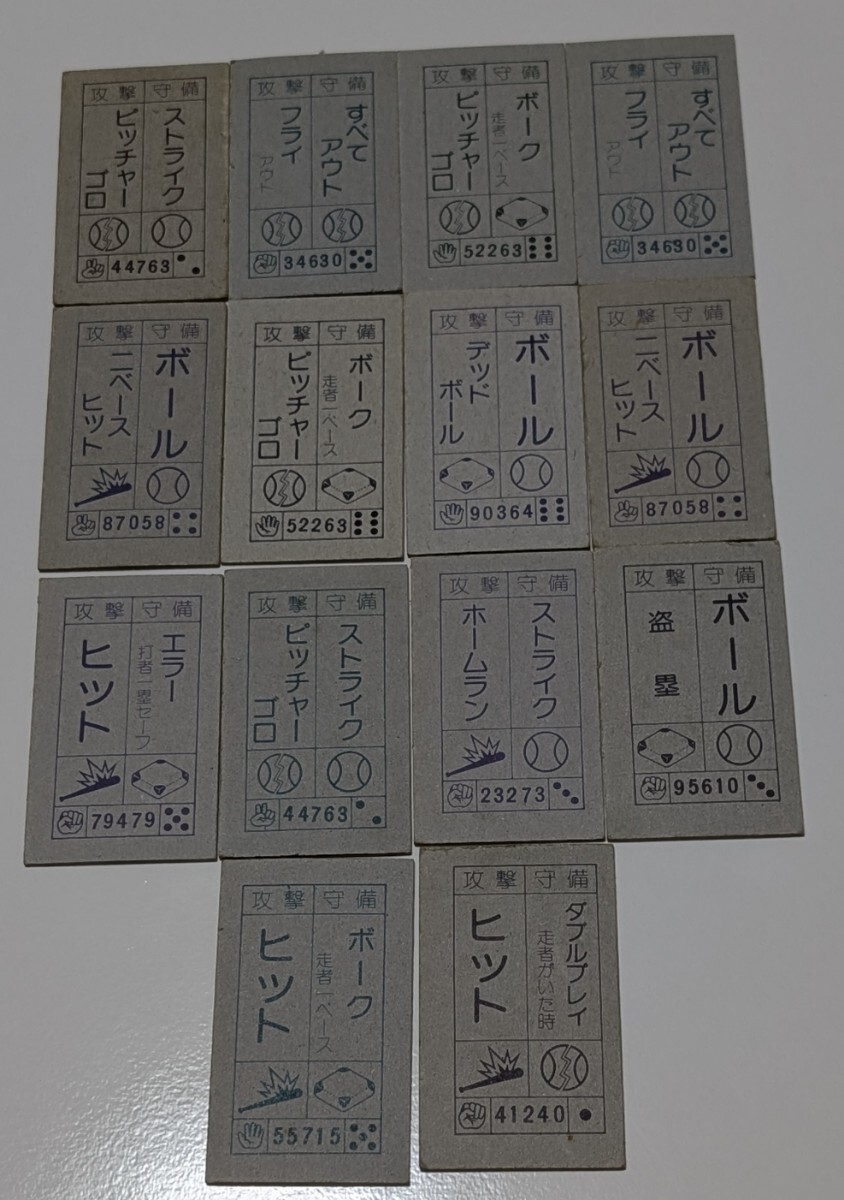 攻撃 守備
ストライク
ピッチャー
ゴロ
44763
攻撃 守備
すべて
アウト
フライ
アウト
34630
攻撃 守備
ボーク
走者一ベース
ピッチャー
ゴロ
52263
攻撃 守備
すべて
アウト
フライ
アウト
34630
攻撃 守備
ボール
二ベース
ヒット
87058
攻撃 守備
ボーク
走者一ベース
ピッチャー
ゴロ
52263
攻撃 守備
ボール
デッド
ボール
90364
攻撃 守備
ボール
二ベース
ヒット
87058
攻撃 守備
エラー
打者一塁セーフ
ヒット
79479
攻撃 守備
ストライク
ピッチャー
ゴロ
44763
攻撃 守備
ストライク
ホームラン
23273
攻撃 守備
ボール
盗塁
95610
攻撃 守備
ボーク
走者一ベース
ヒット
55715
攻撃 守備
ダブルプレイ
走者がいた時
ヒット
41240